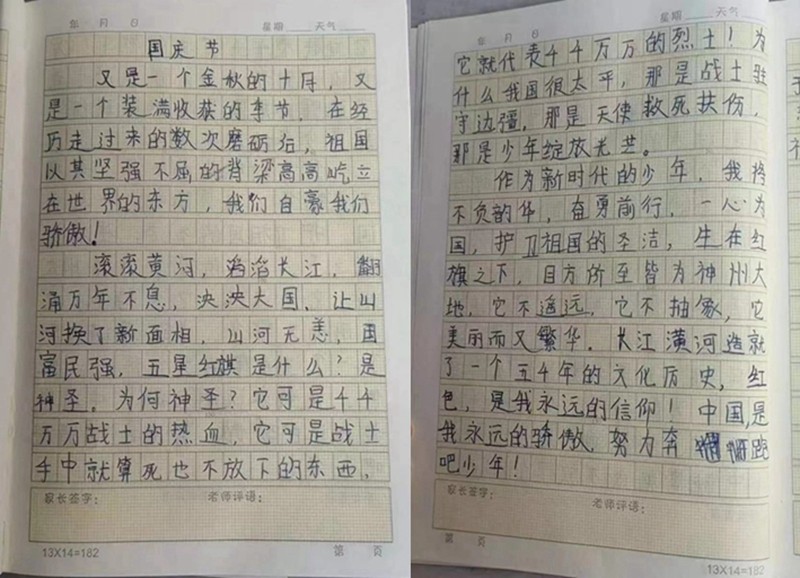 年 月 日 星期 天气
国庆节
又是一个金秋的十月，又
是一个装满收获的季节，在经
历走过来的数次磨砺后，祖国
以其坚强不屈的背梁高高屹立
在世界的东方，我们自豪我们
骄傲！
滚滚黄河，滔滔长江，翻
涌万年不息，泱泱大国，让山
河换了新面相，山河无恙，国
富民强，五星红旗是什么？是
神圣。为何神圣？它可是44
万万战士的热血，它可是战士
手中就算死也不放下的东西，
家长签字： 老师评语：
13X14=182 第 页
年 月 日 星期 天气
它就代表44万万的烈士！为
什么我国很太平，那是战士驻
守边疆，那是天使救死扶伤，
那是少年绽放光芒。
作为新时代的少年，我将
不负韵华，奋勇前行，一心为
国，护卫祖国的圣洁，生在红
旗之下，目方所至皆为神州大
地，它不遥远，它不抽象，它
美丽而又繁华。长江潢河造就
了一个五千年的文化历史，红
色，是我永远的信仰！中国，是
我永远的骄傲，努力奔跑
吧少年！
家长签字： 老师评语：
第 页
13X14=182